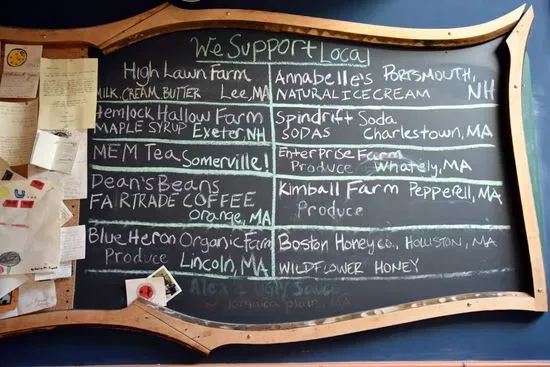 We Support Local
High Lawn Farm
MILK, CREAM, BUTTER Lee, MA
Hemlock Hallow Farm
MAPLE SYRUP Exeter, NH
MEM Tea Somerville!
Dean's Beans
FAIRTRADE COFFEE
Orange, MA
Blue Heron Organic Farm
Produce Lincoln, MA
Annabelle's PORTSMOUTH,
NATURAL ICE CREAM NH
Spindrift Soda
SODAS Charlestown, MA
Enterprise Farm
Produce Whately, MA
Kimball Farm Pepperell, MA
Produce
Boston Honey co., HOLLISTON, MA
WILDFLOWER HONEY
Alex's Ugly Sauce
Jamaica plain, MA